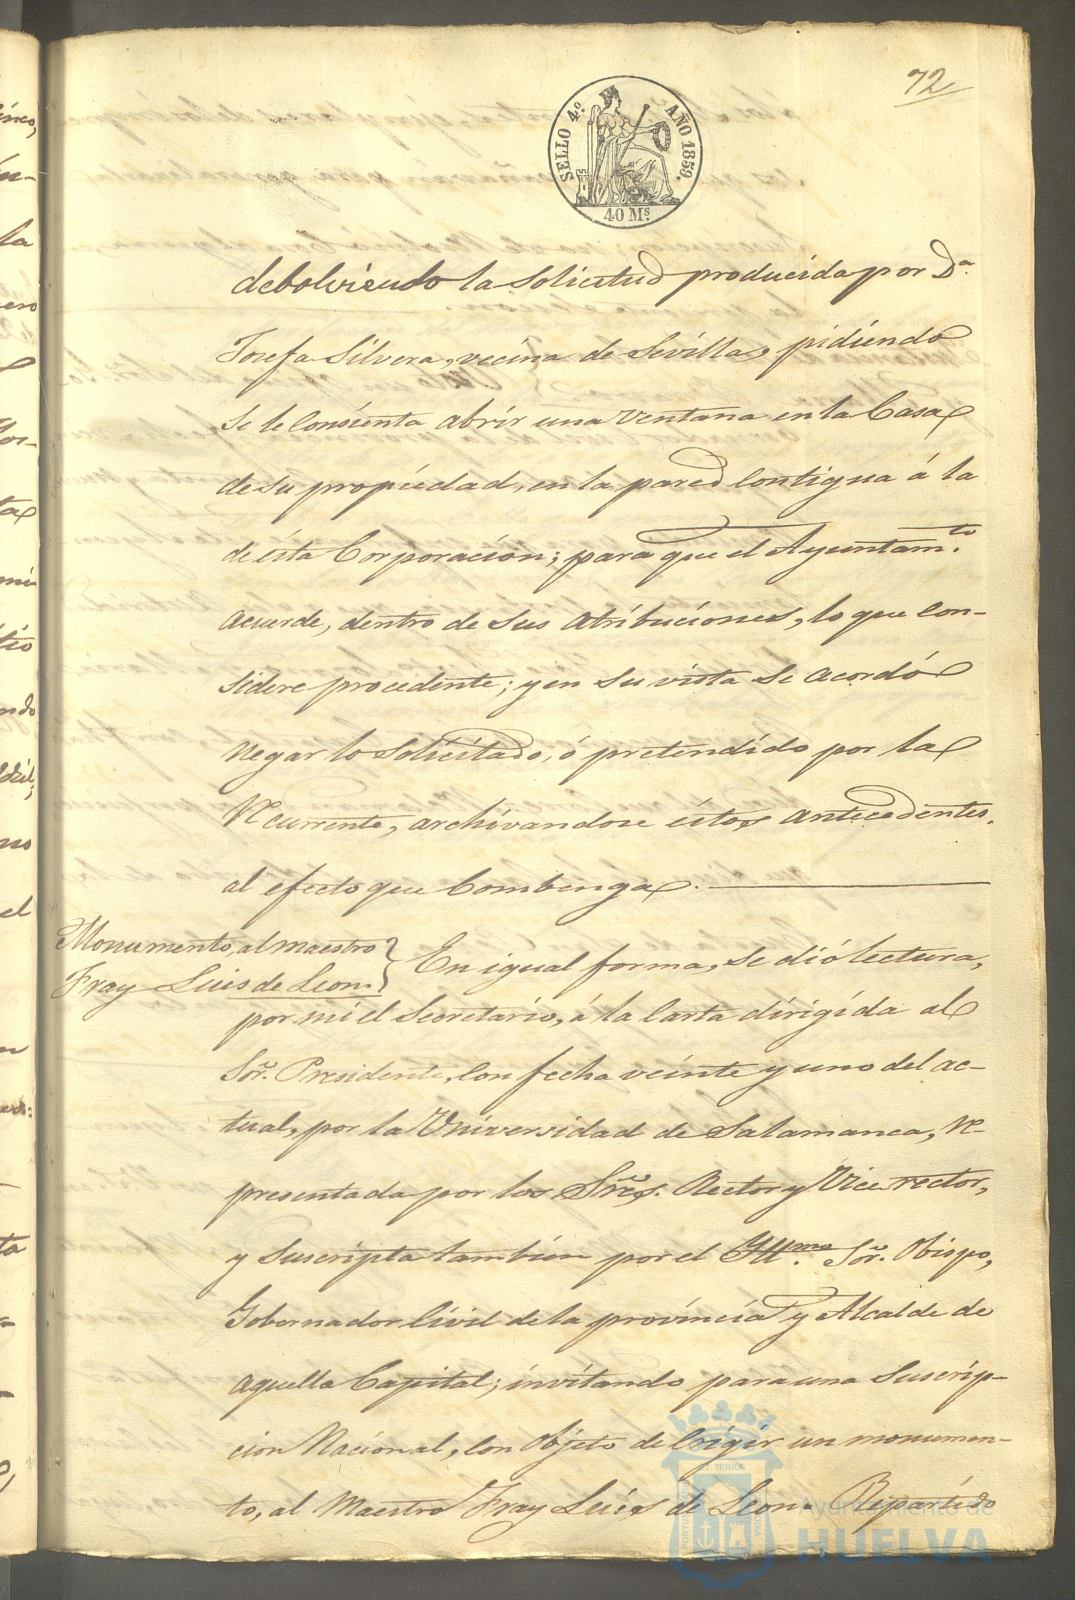 72
SELLO 4.º AÑO 1859.
40 Ms.
debolviendo la solicitud producida por D.ª
Josefa Silvera, vecina de Sevilla, pidiendo
se le consienta abrir una ventana en la Casa
de su propiedad, en la pared contigua á la
de ésta Corporacion; para que el Ayuntam.to
acuerde, dentro de sus atribuciones, lo que con-
sidere procedente; y en su vista se acordó
negar lo solicitado, ó pretendido por la
recurrente, archivandose éstos antecedentes,
al efecto que combenga.
Monumento, al maestro
Fray Luis de Leon.
En igual forma, se dió lectura,
por mi el Secretario, á la carta dirigida al
Sor. Presidente, con fecha veinte y uno del ac-
tual, por la Universidad de Salamanca, re-
presentada por los Sres. Rector y Vice rector,
y suscripta tambien por el Ill.mo Sor. Obispo,
Gobernador Civil de la provincia y Alcalde de
aquella Capital; invitando para una suscrip-
cion Nacional, con objeto de erigir un monumen-
to, al Maestro Fray Luis de Leon. Repartido
ET TERRA
Ayuntamiento de
HUELVA